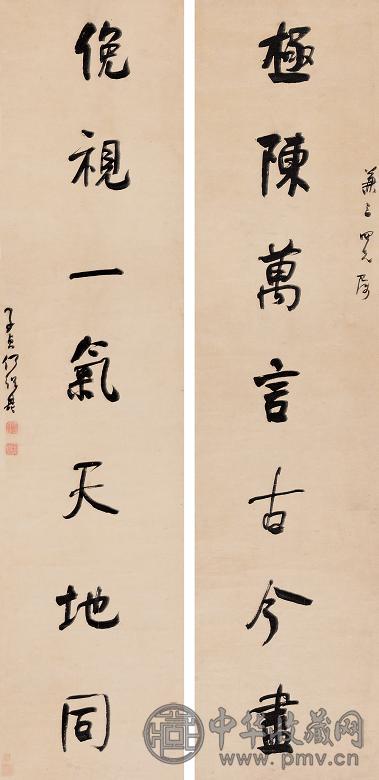 極陳萬言古今盡
四兄屬
俛視一氣天地同
子貞何紹基
中华收藏网
www.pmv.cn